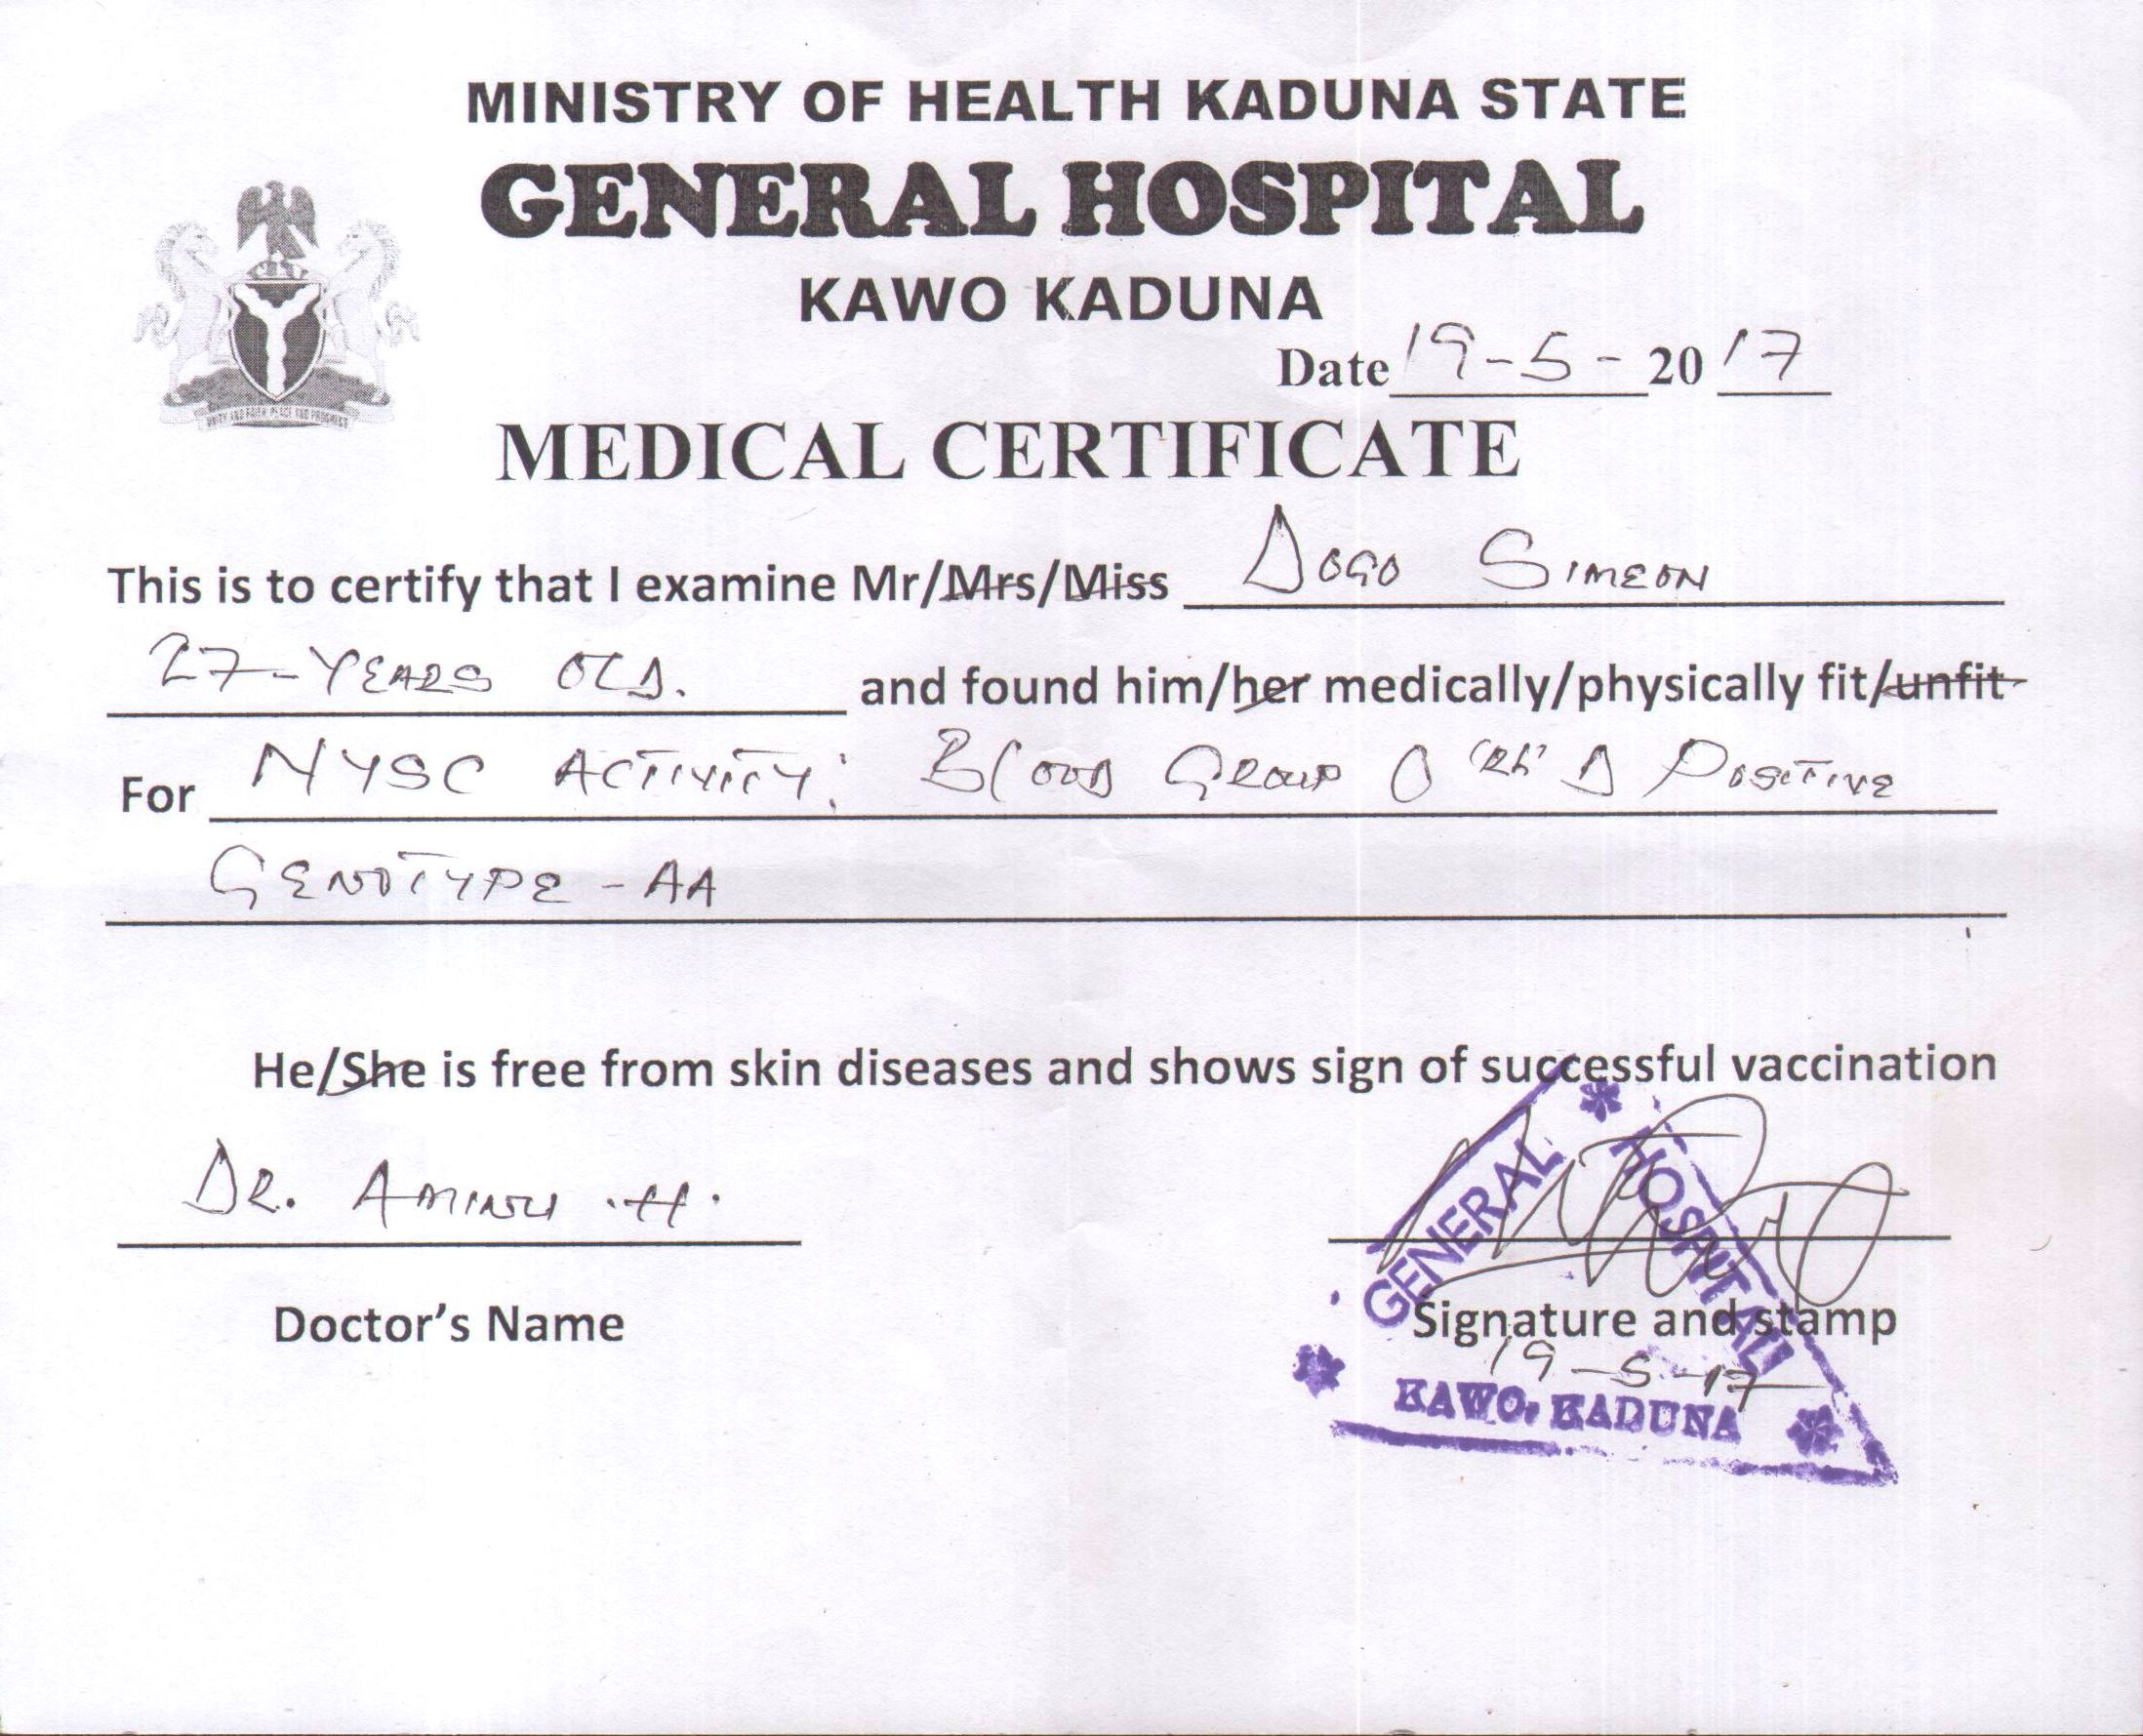 MINISTRY OF HEALTH KADUNA STATE
GENERAL HOSPITAL
KAWO KADUNA
Date 19-5- 20 17
MEDICAL CERTIFICATE
This is to certify that I examine Mr/Mrs/Miss DOGO SIMEON
27-YEARS OLD. and found him/her medically/physically fit/unfit
For NYSC ACTIVITY: Blood Group O 'Rh' D Positive
GENOTYPE - AA
He/She is free from skin diseases and shows sign of successful vaccination
DR. AMINU .H.
Doctor's Name
Signature and stamp
19-5-17
GENERAL HOSPITAL
KAWO, KADUNA